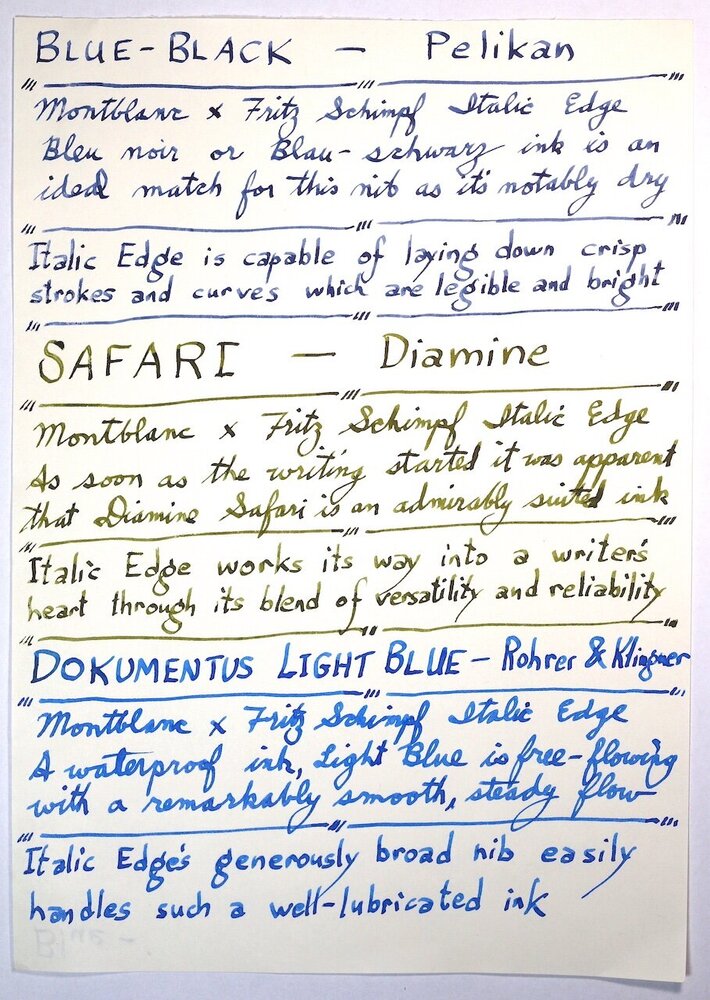 BLUE-BLACK — Pelikan
Montblanc x Fritz Schimpf Italic Edge
Bleu noir or Blau-schwarz ink is an
ideal match for this nib as it's notably dry
Italic Edge is capable of laying down crisp
strokes and curves which are legible and bright
SAFARI — Diamine
Montblanc x Fritz Schimpf Italic Edge
As soon as the writing started it was apparent
that Diamine Safari is an admirably suited ink
Italic Edge works its way into a writer's
heart through its blend of versatility and reliability
DOKUMENTUS LIGHT BLUE - Rohrer & Klingner
Montblanc x Fritz Schimpf Italic Edge
A waterproof ink, Light Blue is free-flowing
with a remarkably smooth, steady flow
Italic Edge's generously broad nib easily
handles such a well-lubricated ink
Blue -